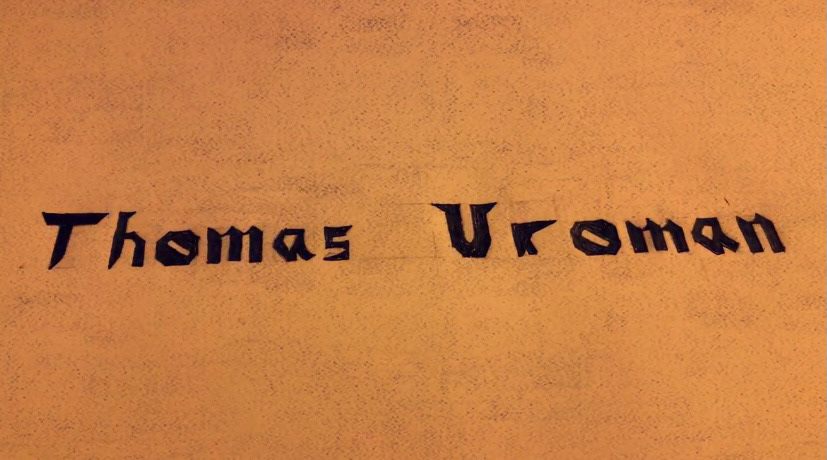 Thomas Vroman